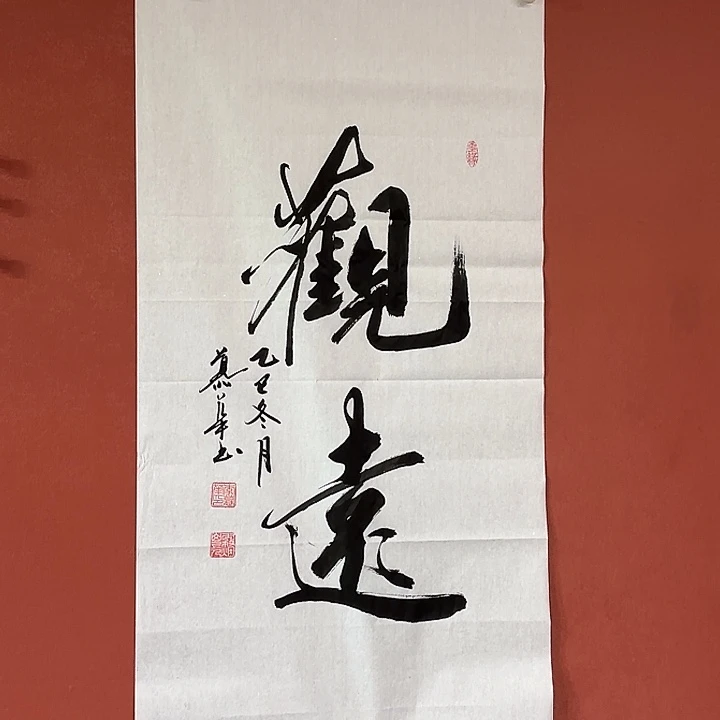 觀
遠
乙巳冬月
慕華书